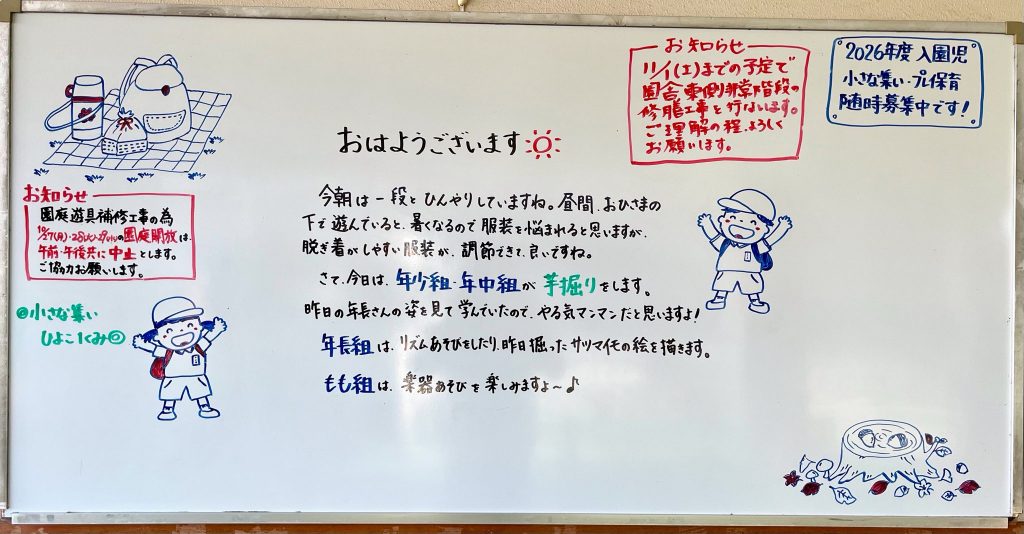 お知らせ
11/1(土)までの予定で
園舎東側非常階段の
修膳工事を行ないます。
ご理解の程、よろしく
お願いします。
2026年度 入園児
小さな集い・プレ保育
随時募集中です!
おはようございます
今朝は一段とひんやりしていますね。昼間、おひさまの
下で遊んでいると、暑くなるので服装を悩まれると思いますが、
脱ぎ着がしやすい服装が、調節できて、良いですね。
さて、今日は、年少組・年中組が芋掘りをします。
昨日の年長さんの姿を見て学んでいたので、やる気マンマンだと思いますよ!
年長組は、リズムあそびをしたり、昨日掘ったサツマイモの絵を描きます。
もも組は、楽器あそびを楽しみますよ〜♪
お知らせ
園庭遊具補修工事の為
10/27(月)・28(火)・29(水)の園庭開放は、
午前・午後共に中止とします。
ご協力お願いします。
@小さな集い
ひよこ1くみ◎